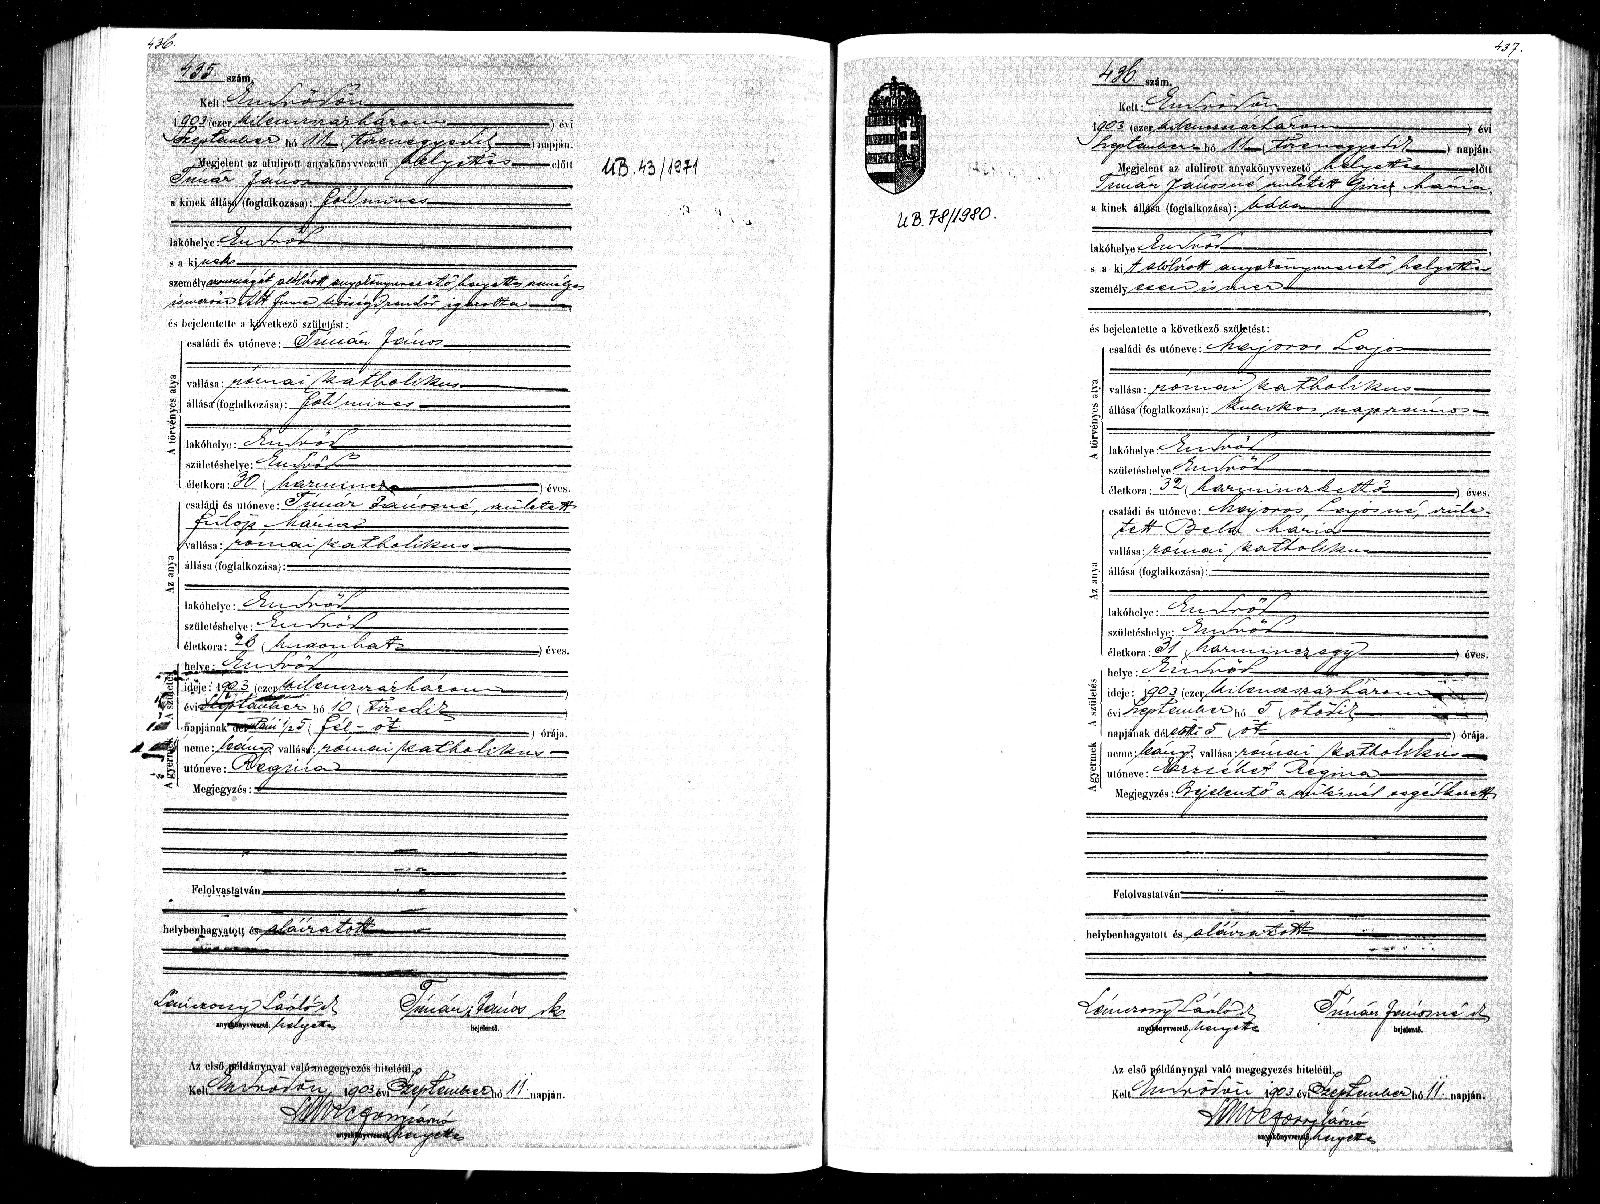 436.
435 szám.
Kelt: Endrődön
1903 (ezer kilenczszázhárom) évi
Szeptember hó 11 (tizenegyedik) napján.
Megjelent az alulirott anyakönyvvezető helyettes előtt
Tímár János
a kinek állása (foglalkozása): földmives
lakóhelye: Endrőd
s a kinek
személyazonosságát alólírott anyakönyvvezető helyettes
és bejelentette a következő születést:
A törvényes atya
családi és utóneve: Tímár János
vallása: római katholikus
állása (foglalkozása): földmives
lakóhelye: Endrőd
születéshelye: Endrőd
életkora: 30 (harmincz) éves.
Az anya
családi és utóneve: Tímár Jánosné, született
Fülöp Mária
vallása: római katholikus
állása (foglalkozása):
lakóhelye: Endrőd
születéshelye: Endrőd
életkora: 26 (huszonhat) éves.
A születés
helye: Endrőd
ideje: 1903 (ezer kilenczszázhárom)
évi Szeptember hó 10 (tizedik)
napjának dél után ½5 (fél-öt) órája.
A gyermek
neme: leány, vallása: római katholikus
utóneve: Regina
Megjegyzés:
Felolvastatván
helybenhagyatott és aláiratott
Tímár János sk
anyakönyvvezető. helyettes
bejelentő.
Az első példánynyal való megegyezés hiteléül.
Kelt Endrődön 1903 évi Szeptember hó 11 napján.
anyakönyvvezető helyettes
UB. 43/1971
437.
UB. 78/1980.
436 szám.
Kelt: Endrődön
1903 (ezer kilenczszázhárom) évi
Szeptember hó 11 (tizenegyedik) napján.
Megjelent az alulirott anyakönyvvezető helyettes előtt
Tímár Jánosné született Mária,
a kinek állása (foglalkozása): bába
lakóhelye: Endrőd
s a kit alólírott anyakönyvvezető helyettes
személyesen ismer
és bejelentette a következő születést:
A törvényes atya
családi és utóneve: Majoros Lajos
vallása: római katholikus
állása (foglalkozása): kubikos napszámos
lakóhelye: Endrőd
születéshelye Endrőd
életkora: 32 (harminczkettő) éves.
Az anya
családi és utóneve: Majoros Lajosné, szüle-
tett Bela Mária
vallása: római katholikus
állása (foglalkozása):
lakóhelye: Endrőd
születéshelye: Endrőd
életkora: 31 (harminczegy) éves.
A születés
helye: Endrőd
ideje: 1903 (ezer kilenczszázhárom)
évi Szeptember hó 5 (ötödik)
napjának dél előtt 5 (öt) órája.
A gyermek
neme: leány, vallása: római katholikus
utóneve: Erzsébet Regina
Megjegyzés: Bejelentő a szülésnél segédkezett
Felolvastatván
helybenhagyatott és aláiratott
Tímár Jánosné sk
anyakönyvvezető. helyettes
bejelentő.
Az első példánynyal való megegyezés hiteléül.
Kelt Endrődön 1903 évi Szeptember hó 11 napján.
anyakönyvvezető helyettes